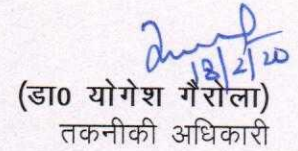 18/2/20
(डा0 योगेश गैरोला)
तकनीकी अधिकारी